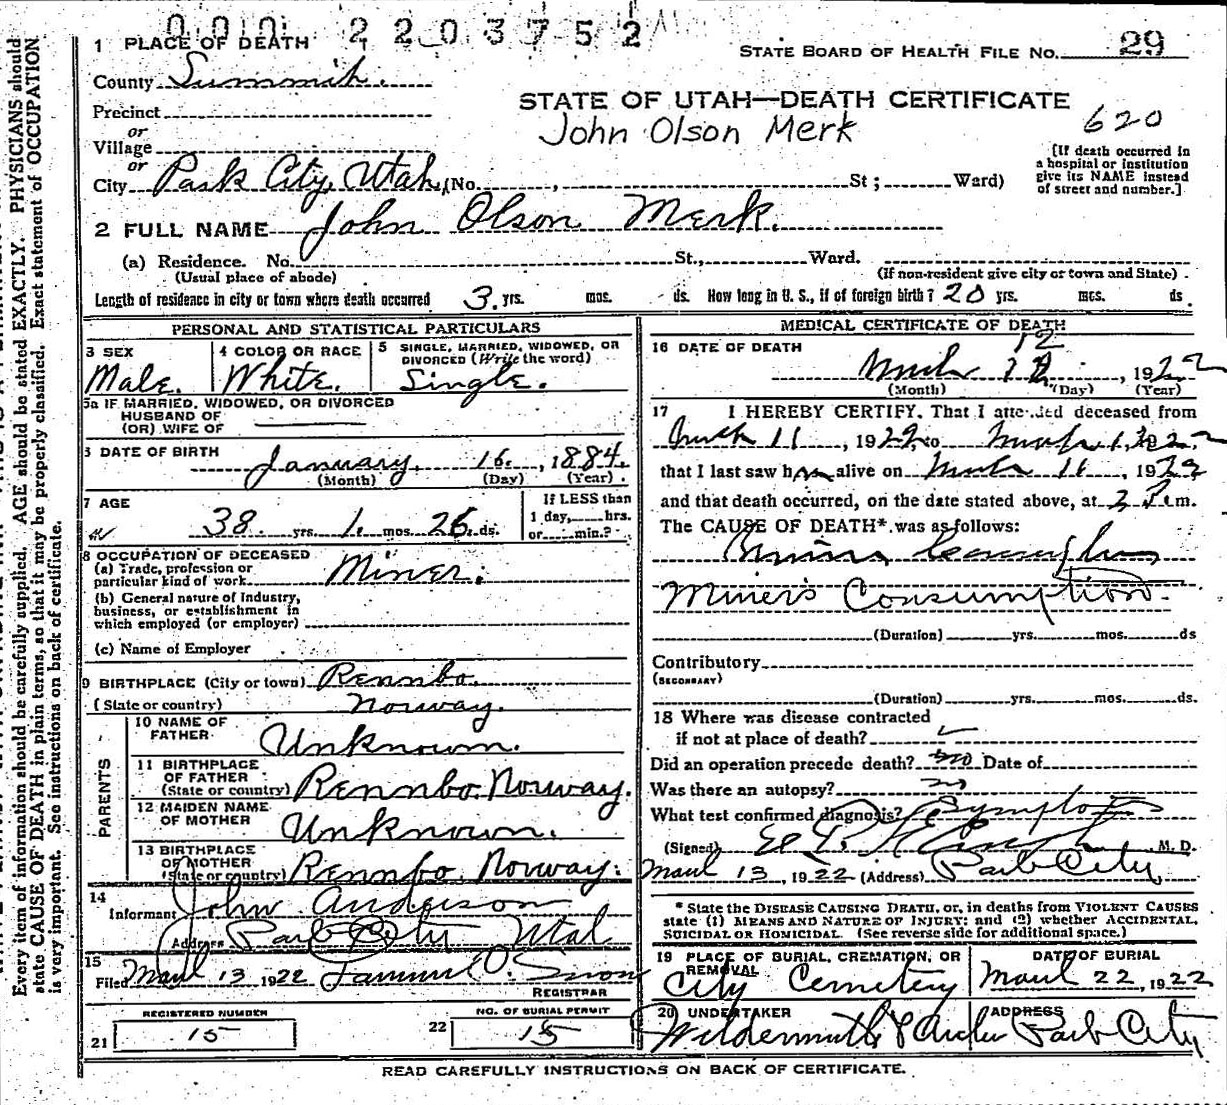 000 2203752
1 PLACE OF DEATH
STATE BOARD OF HEALTH FILE No. 29
County Summit.
STATE OF UTAH—DEATH CERTIFICATE
Precinct
John Olson Merk
620
or
Village
or
[If death occurred in
a hospital or institution
give its NAME instead
of street and number.]
City Park City, Utah, (No. , St ; Ward)
2 FULL NAME John Olson Merk.
(a) Residence. No. St., Ward.
(Usual place of abode) (If non-resident give city or town and State)
Length of residence in city or town where death occurred 3. yrs. mos. ds. How long in U. S., if of foreign birth? 20 yrs. mos. ds.
PERSONAL AND STATISTICAL PARTICULARS
3 SEX
Male.
4 COLOR OR RACE
White.
5 SINGLE, MARRIED, WIDOWED, OR
DIVORCED (Write the word)
Single.
5a IF MARRIED, WIDOWED, OR DIVORCED
HUSBAND OF
(OR) WIFE OF
6 DATE OF BIRTH
January 16. , 1884.
(Month) (Day) (Year)
7 AGE
38 yrs. 1. mos. 26 ds.
If LESS than
1 day, hrs.
or min.?
8 OCCUPATION OF DECEASED
(a) Trade, profession or
particular kind of work Miner.
(b) General nature of Industry,
business, or establishment in
which employed (or employer)
(c) Name of Employer
9 BIRTHPLACE (City or town) Rennbo.
(State or country) Norway.
PARENTS
10 NAME OF
FATHER Unknown.
11 BIRTHPLACE
OF FATHER
(State or country) Rennbo. Norway.
12 MAIDEN NAME
OF MOTHER Unknown.
13 BIRTHPLACE
OF MOTHER
(State or country) Rennbo. Norway.
14
Informant John Anderson
Address Park City Utah
15
Filed March 13 1922 O. Snow
REGISTRAR
REGISTERED NUMBER
21 15
NO. OF BURIAL PERMIT
22 15
MEDICAL CERTIFICATE OF DEATH
16 DATE OF DEATH
12
March 12 , 1922
(Month) (Day) (Year)
17 I HEREBY CERTIFY, That I attended deceased from
March 11 , 1922, to March 12 1922
that I last saw him alive on March 11 , 1922
and that death occurred, on the date stated above, at 2 P.m.
The CAUSE OF DEATH* was as follows:
Miners Consumption
Miner's Consumption.
(Duration) yrs. mos. ds
Contributory
(SECONDARY)
(Duration) yrs. mos. ds.
18 Where was disease contracted
if not at place of death?
Did an operation precede death? no Date of
Was there an autopsy? no
What test confirmed diagnosis? Symptoms
(Signed) M. D.
March 13, 1922 (Address) Park City
* State the DISEASE CAUSING DEATH, or, in deaths from VIOLENT CAUSES
state (1) MEANS AND NATURE OF INJURY; and (2) whether ACCIDENTAL,
SUICIDAL OR HOMICIDAL. (See reverse side for additional space.)
19 PLACE OF BURIAL, CREMATION, OR
REMOVAL
City Cemetery
DATE OF BURIAL
March 22, 1922
20 UNDERTAKER
ADDRESS
Park City
READ CAREFULLY INSTRUCTIONS ON BACK OF CERTIFICATE.
Every item of information should be carefully supplied. AGE should be stated EXACTLY. PHYSICIANS should
state CAUSE OF DEATH in plain terms, so that it may be properly classified. Exact statement of OCCUPATION
is very important. See instructions on back of certificate.